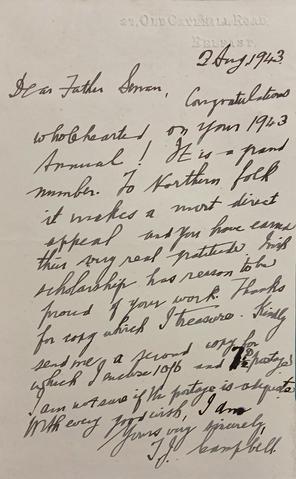 27, OLD CAVEHILL ROAD,
BELFAST
2 Aug 1943.
Dear Father
Congratulations
wholehearted on your 1943
Annual! It is a grand
number. To Northern folk
it makes a most direct
appeal and you have earned
their very real gratitude. Irish
scholarship has reason to be
proud of your work. Thanks
for copy which I treasure. Kindly
send me a second copy for
which I enclose 10/6 and 7½d postage.
I am not sure if the postage is adequate.
With every good wish, I am
Yours very sincerely,
T.J. Campbell.